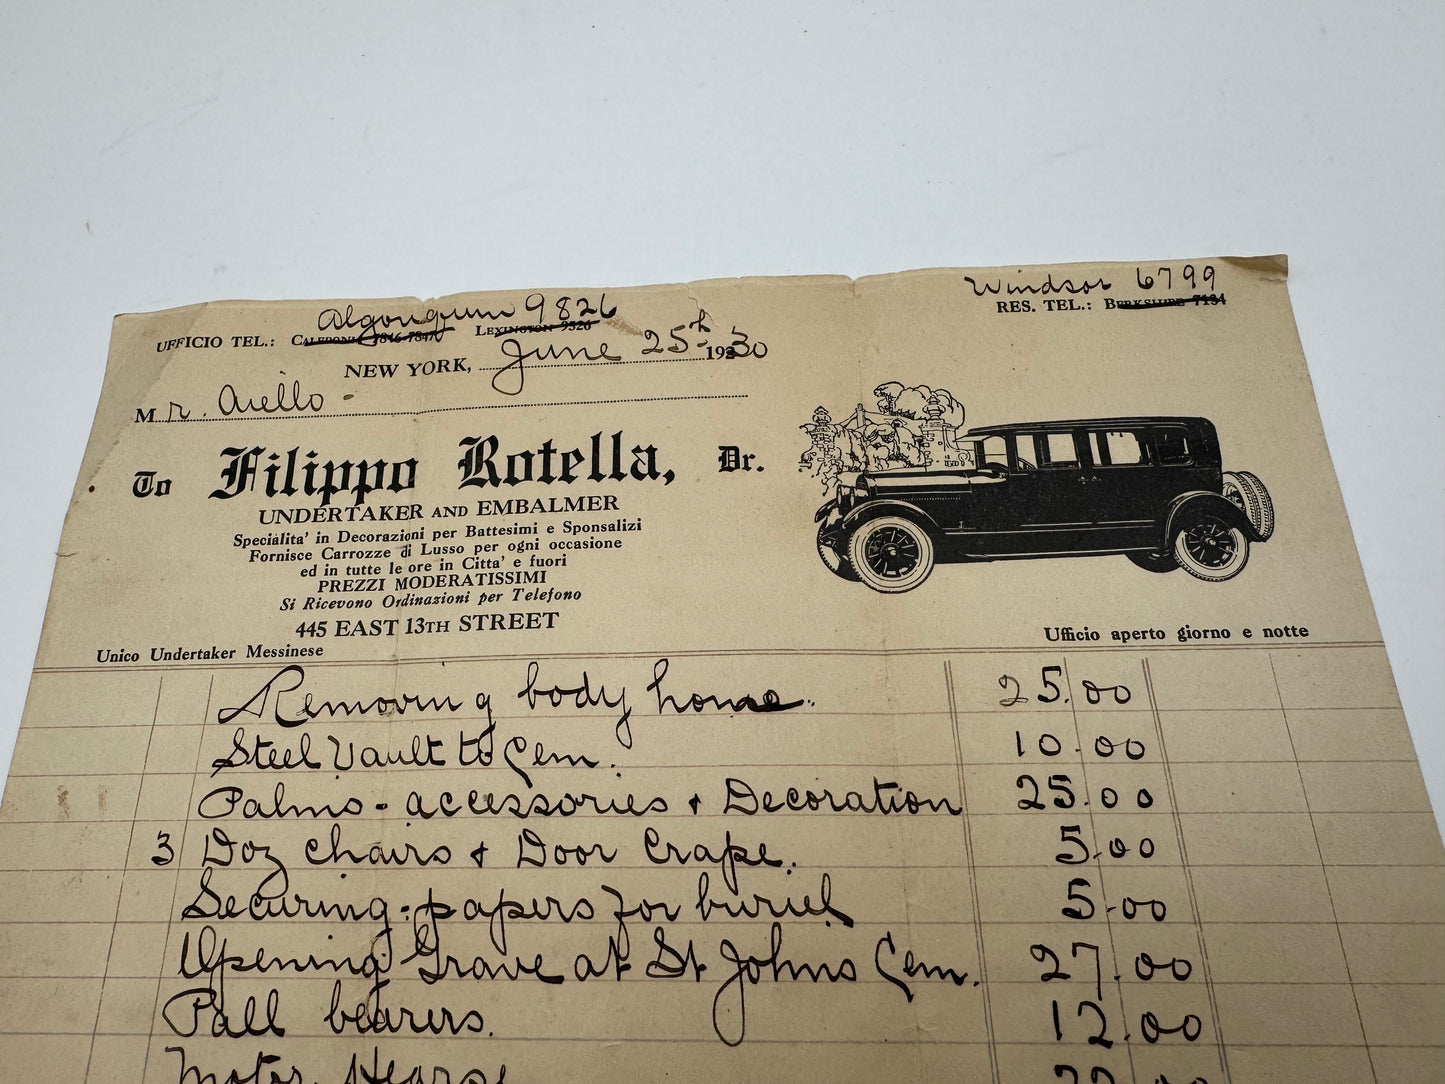 Algonquin 9826
Windsor 6799
UFFICIO TEL.: Caledonia 7846-7847 Lexington 9326
RES. TEL.: Berkshire 7134
NEW YORK, June 25th 1930
Mr. Aiello -
To Filippo Rotella, Dr.
UNDERTAKER AND EMBALMER
Specialita' in Decorazioni per Battesimi e Sponsalizi
Fornisce Carrozze di Lusso per ogni occasione
ed in tutte le ore in Citta' e fuori
PREZZI MODERATISSIMI
Si Ricevono Ordinazioni per Telefono
445 EAST 13TH STREET
Unico Undertaker Messinese
Ufficio aperto giorno e notte
Removing body home. 25.00
Steel Vault to Cem. 10.00
Palms - accessories & Decoration 25.00
3 Doz chairs & Door Crape. 5.00
Securing papers for buriel 5.00
Opening Grave at St Johns Cem. 27.00
Pall bearers. 12.00
Motor Hearse